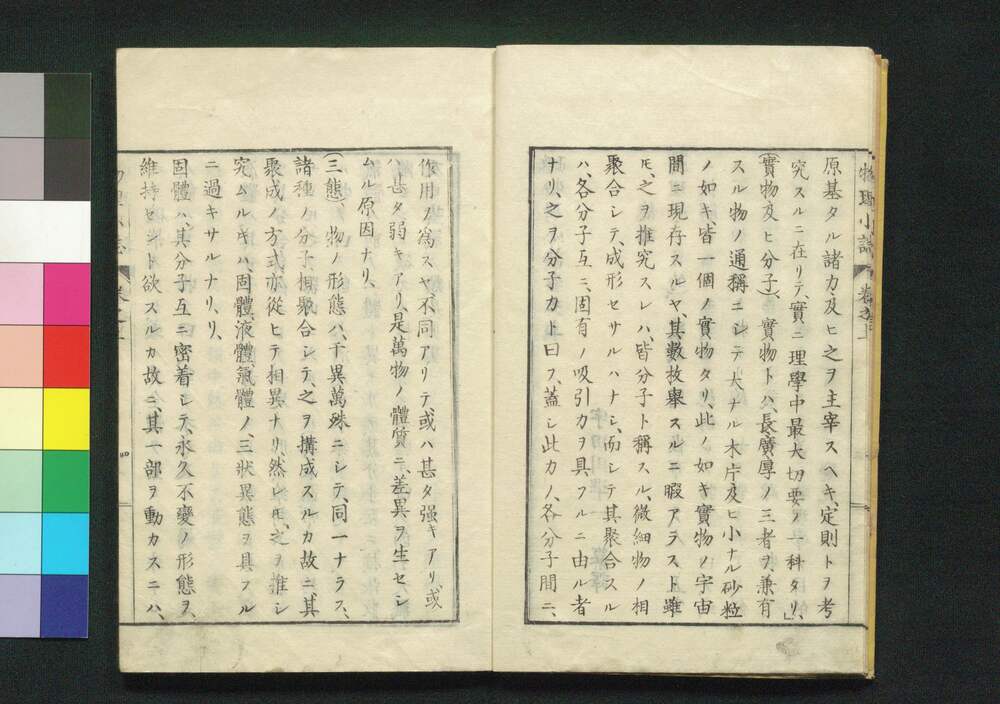 原基タル諸力及ヒ之ヲ主宰スヘキ定則トヲ考
究スルニ在リテ、實ニ理學中最大切要ノ一科タリ、」
(實物及ヒ分子)、實物トハ、長廣厚ノ三者ヲ兼有
スル物ノ通稱ニシテ大ナル木片及ヒ小ナル砂粒
ノ如キ、皆一個ノ實物タリ、此ノ如キ實物ノ宇宙
間ニ現存スルヤ、其數枚擧スルニ暇アラスト雖
𪜈、之ヲ推究スレハ、皆分子ト稱スル、微細物ノ相
聚合シテ、成形セサルハナシ、而シテ其聚合スル
ハ、各分子互ニ、固有ノ吸引力ヲ具フルニ由ル者
ナリ、之ヲ分子力ト曰フ、蓋シ此力ノ、各分子間ニ、
作用ヲ為スヤ不同アリテ或ハ甚タ强キアリ、或
ハ甚タ弱キアリ、是萬物ノ體質ニ、差異ヲ生セシ
ムル原因ナリ、
(三態)、物ノ形態ハ、千異萬殊ニシテ、同一ナラス、
諸種ノ分子相聚合シテ、之ヲ構成スルカ故ニ、其
聚成ノ方式亦從ヒテ相異ナリ、然レ𪜈、之ヲ推シ
究ムルキハ、固體、液體、氣體ノ、三狀異態ヲ具フル
ニ過キサルナリ、リ、
固體ハ、其分子互ニ密着シテ、永久不變ノ形態ヲ、
維持セント欲スルカ故ニ、其一部ヲ動カスニハ、